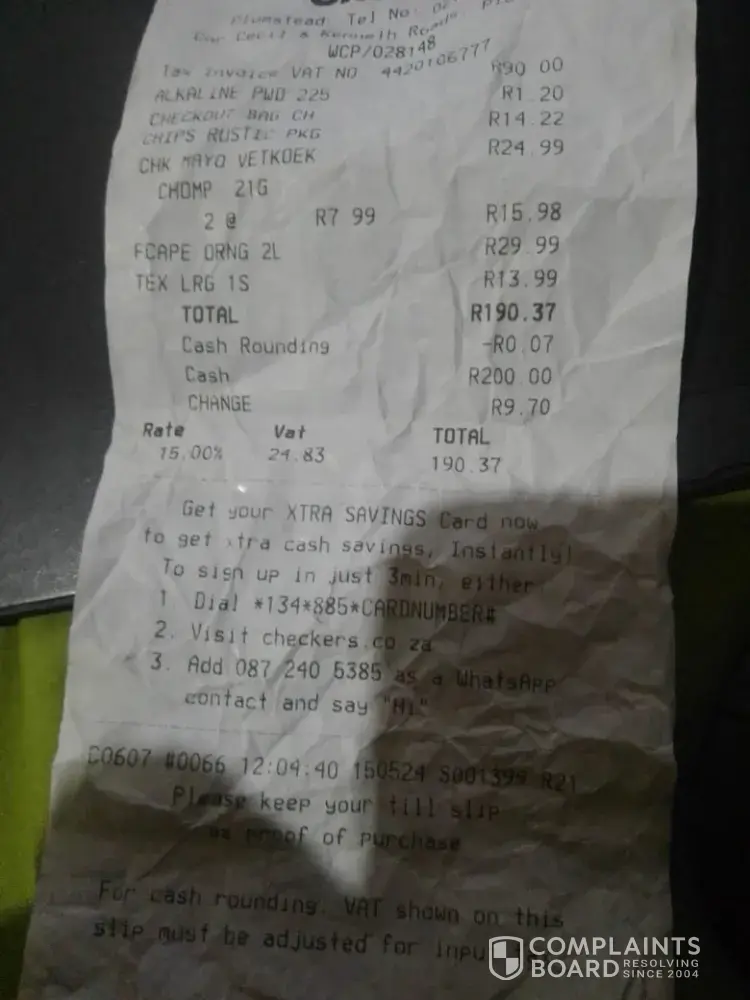 Plumstead Tel No:
Cnr Cecil & Kenneth Roads,
WCP/028148
Tax Invoice VAT NO 4420106777
ALKALINE PWD 225 R90 00
CHECKOUT BAG CH R1.20
CHIPS RUSTIC PKG R14.22
CHK MAYO VETKOEK R24.99
CHOMP 21G
2 @ R7 99 R15.98
FCAPE ORNG 2L R29.99
TEX LRG 1S R13.99
TOTAL R190.37
Cash Rounding -R0.07
Cash R200.00
CHANGE R9.70
Rate Vat TOTAL
15.00% 24.83 190.37
Get your XTRA SAVINGS Card now
to get xtra cash savings, Instantly!
To sign up in just 3min, either
1. Dial *134*885*CARDNUMBER#
2. Visit checkers.co za
3. Add 087 240 5385 as a WhatsApp
contact and say "Hi"
C0607 #0066 12:04:40 150524 S001399 R21
Please keep your till slip
as proof of purchase
For cash rounding, VAT shown on this
slip must be adjusted for
COMPLAINTS
BOARD RESOLVING
SINCE 2004